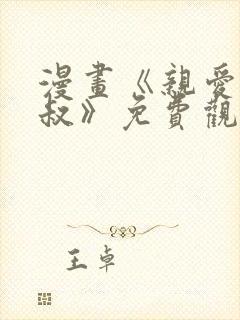 漫畫《親愛
叔》免費觀
王卓